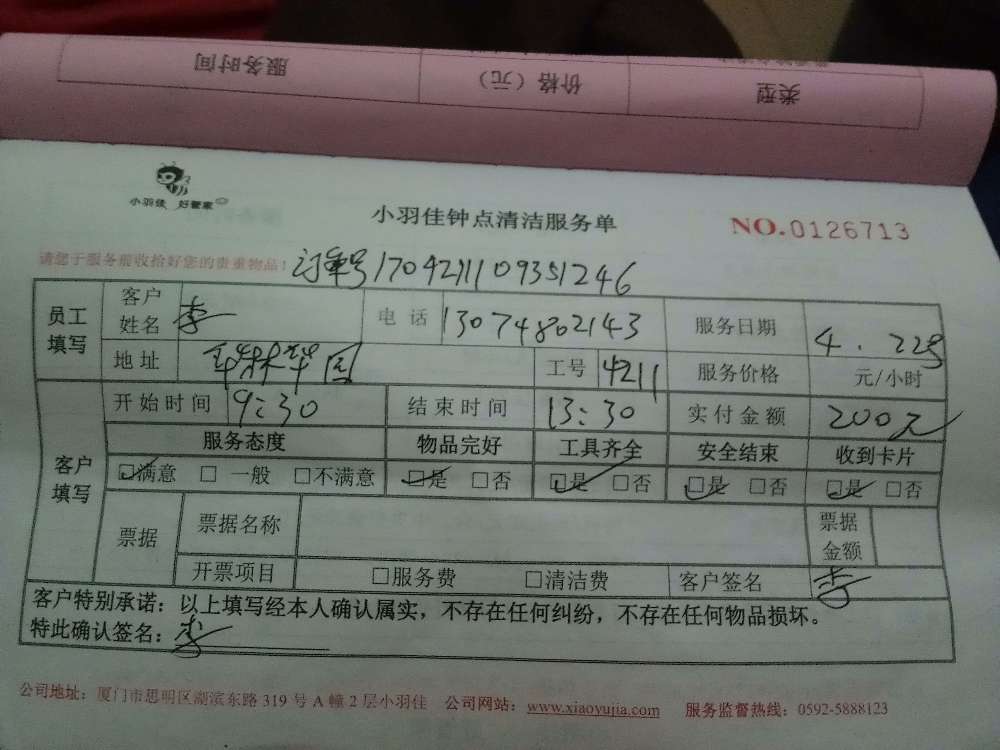 服务时间 价格（元） 类型
小羽佳 好管家
小羽佳钟点清洁服务单
NO.0126713
请您于服务前收拾好您的贵重物品！
订单号1704211109351246
员工填写 客户姓名 李 电话 13074802143 服务日期 4.22号
地址 华林华园 工号 4211 服务价格 元/小时
客户填写 开始时间 9:30 结束时间 13:30 实付金额 200元
服务态度 物品完好 工具齐全 安全结束 收到卡片
☑满意 □一般 □不满意 ☑是 □否 ☑是 □否 ☑是 □否 ☑是 □否
票据 票据名称 票据金额
开票项目 □服务费 □清洁费 客户签名 李
客户特别承诺：以上填写经本人确认属实，不存在任何纠纷，不存在任何物品损坏。
特此确认签名：李
公司地址：厦门市思明区湖滨东路319号A幢2层小羽佳 公司网站：www.xiaoyujia.com 服务监督热线：0592-5888123